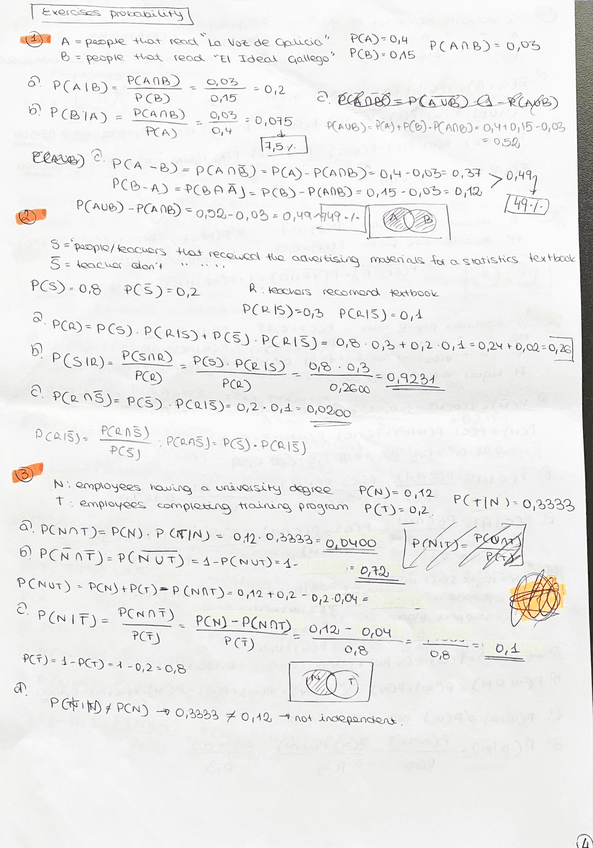 Exercises probability
① A = people that read "La Voz de Galicia" P(A)=0,4 P(A∩B)=0,03
B = people that read "El Ideal Gallego" P(B)=0,15
a. P(A|B) = P(A∩B)/P(B) = 0,03/0,15 = 0,2
b. P(B|A) = P(A∩B)/P(A) = 0,03/0,4 = 0,075
7,5%
P(A∪B) = P(A)+P(B)-P(A∩B) = 0,4+0,15-0,03
= 0,52
c. P(A-B) = P(A∩B̅) = P(A)-P(A∩B) = 0,4-0,03 = 0,37 > 0,49
P(B-A) = P(B∩A̅) = P(B)-P(A∩B) = 0,15-0,03 = 0,12
49%
P(A∪B)-P(A∩B) = 0,52-0,03 = 0,49 → 49% A B
②
S = people/teachers that received the advertising materials for a statistics textbook
S̅ = teacher didn't " " " "
P(S)=0,8 P(S̅)=0,2 R: teachers recomend textbook
P(R|S)=0,3 P(R|S̅)=0,1
a. P(R) = P(S) · P(R|S) + P(S̅) · P(R|S̅) = 0,8 · 0,3 + 0,2 · 0,1 = 0,24 + 0,02 = 0,26
b. P(S|R) = P(S∩R)/P(R) = P(S) · P(R|S)/P(R) = 0,8 · 0,3/0,2600 = 0,9231
c. P(R∩S̅) = P(S̅) · P(R|S̅) = 0,2 · 0,1 = 0,0200
P(R|S̅) = P(R∩S̅)/P(S̅) ; P(R∩S̅) = P(S̅) · P(R|S̅)
③
N: employees having a university degree P(N)=0,12 P(T|N)=0,3333
T: employees completing training program P(T)=0,2
a. P(N∩T) = P(N) · P(T|N) = 0,12 · 0,3333 = 0,0400 P(N|T) = P(N∩T)/P(T)
b. P(N̅∩T̅) = P(N̅∪̅T̅) = 1-P(N∪T) = 1- = 0,72
P(N∪T) = P(N)+P(T)-P(N∩T) = 0,12+0,2-0,04 =
c. P(N|T̅) = P(N∩T̅)/P(T̅) = P(N)-P(N∩T)/P(T̅) = 0,12-0,04/0,8 = /0,8 = 0,1
P(T̅) = 1-P(T) = 1-0,2 = 0,8
N T
d.
P(T|N) ≠ P(N) → 0,3333 ≠ 0,12 → not independent.
4